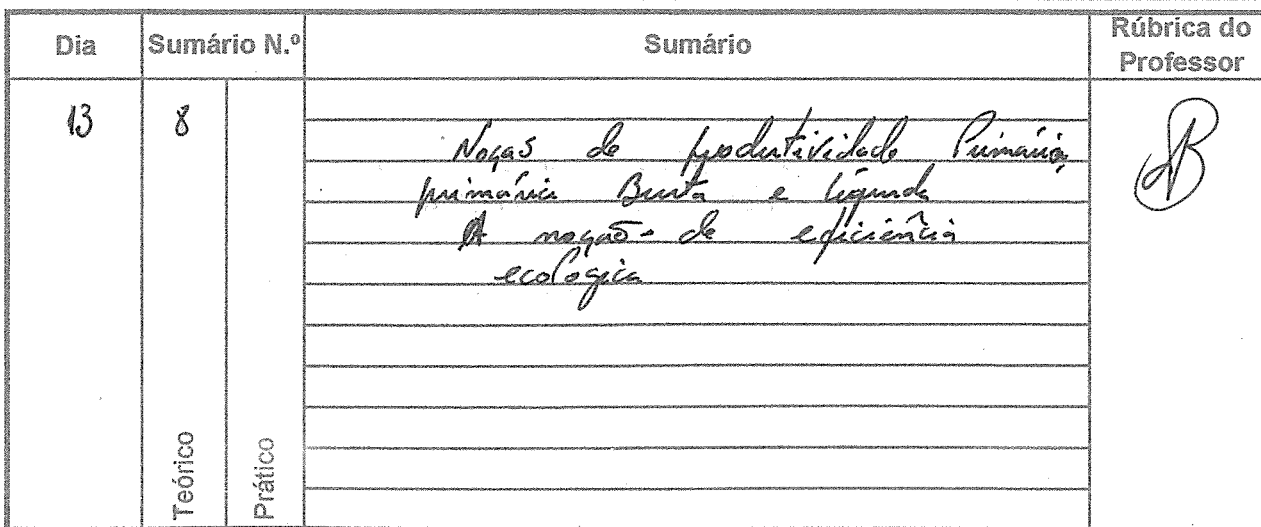 Dia Sumário N.º Sumário Rúbrica do Professor
13 8
Noças de produtividade Primária,
primária Bruta e líquida
A noção de eficiência
ecologica
Teórico Prático